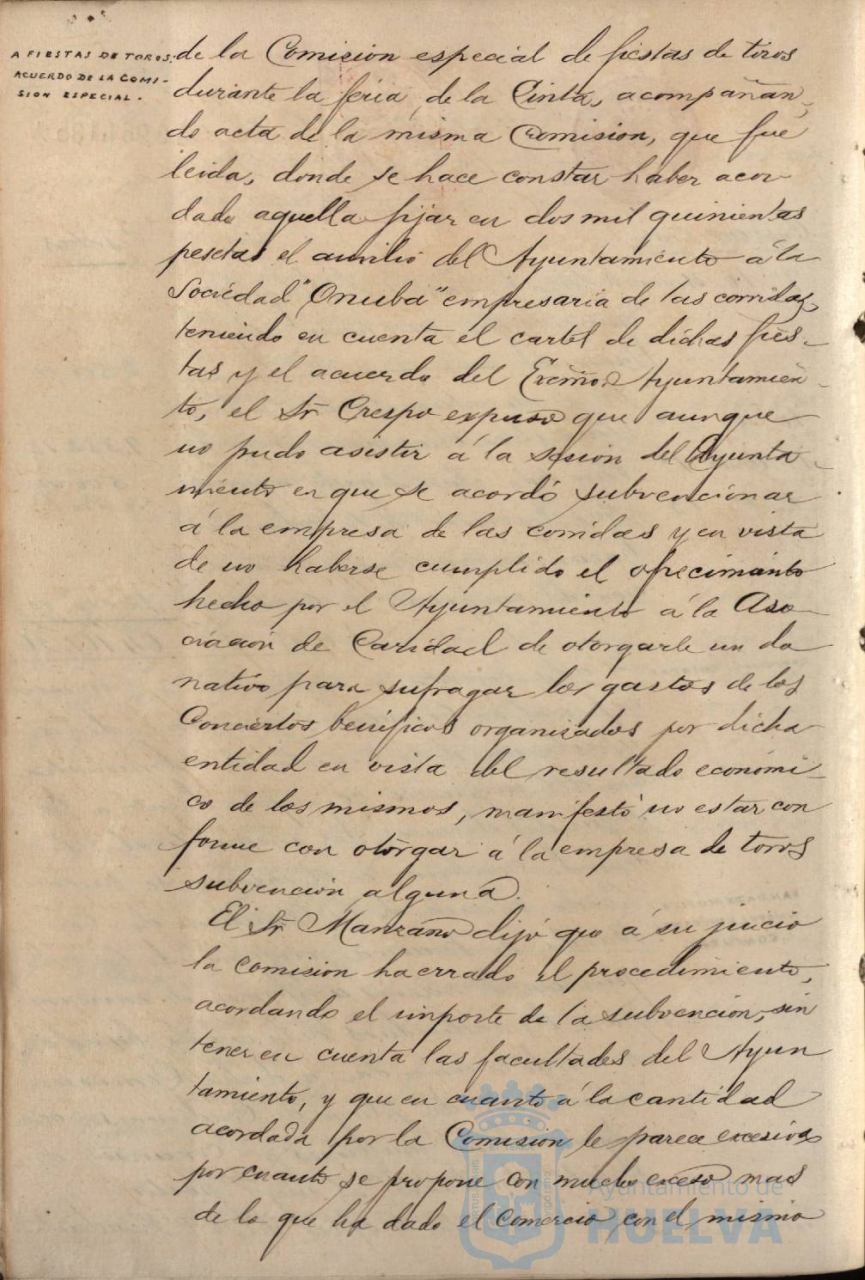 A FIESTAS DE TOROS.
ACUERDO DE LA COMI-
SION ESPECIAL.
de la Comision especial de fiestas de toros
durante la feria de la Cinta, acompañan-
do acta de la misma Comision, que fué
leida, donde se hace constar haber acor-
dado aquella fijar en dos mil quinientas
pesetas el auxilio del Ayuntamiento á la
Sociedad "Onuba" empresaria de las corridas,
teniendo en cuenta el cartel de dichas fies-
tas y el acuerdo del Excmo. Ayuntamien-
to, el Sr Crespo expuso que aunque
no pudo asistir á la sesion del Ayunta-
miento en que se acordó subvencionar
á la empresa de las corridas y en vista
de no haberse cumplido el ofrecimiento
hecho por el Ayuntamiento á la Aso-
ciacion de Caridad de otorgarle un do
nativo para sufragar los gastos de los
Conciertos benéficos organizados por dicha
entidad en vista del resultado económi-
co de los mismos, manifestó no estar con
forme con otorgar á la empresa de toros
subvencion alguna.
El Sr Manzano dijo que á su juicio
la Comision ha errado el procedimiento,
acordando el importe de la subvencion, sin
tener en cuenta las facultades del Ayun
tamiento, y que en cuanto á la cantidad
acordada por la Comision le parece excesiva
por cuanto se propone con mucho exceso mas
de lo que ha dado el Comercio, con el mismo
Ayuntamiento de
HUELVA